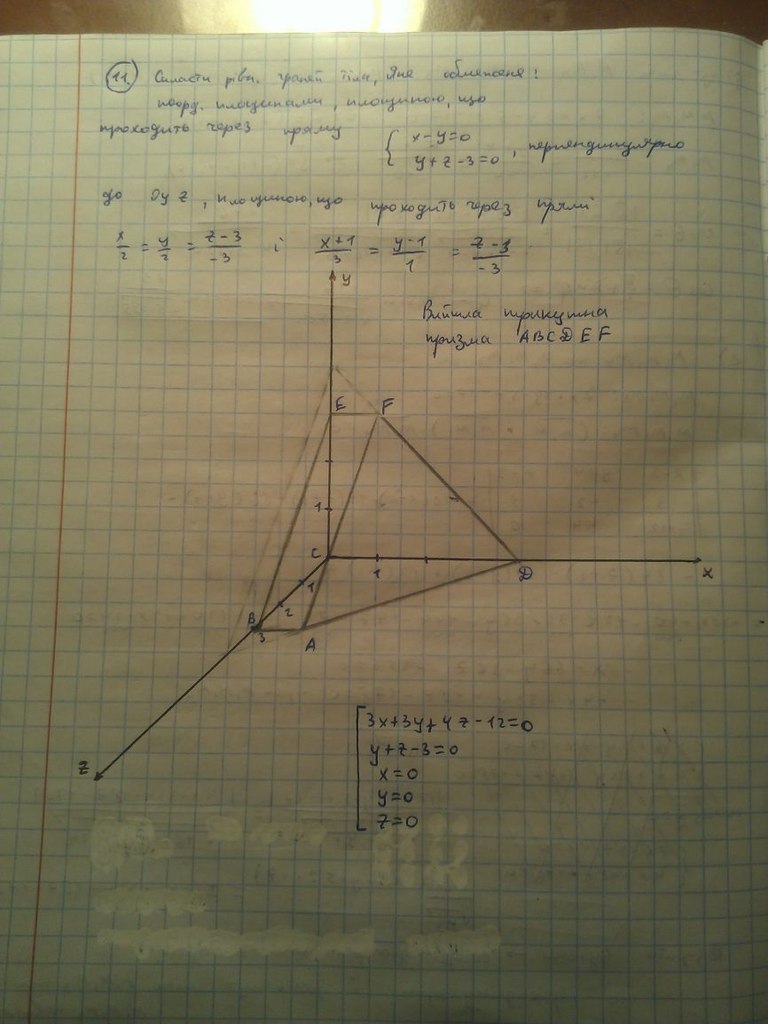 11 Скласти рівн. граней тіла, яке обмежене:
коорд. площинами, площиною, що
проходить через пряму { x-y=0
y+z-3=0 , перпендикулярно
до Oyz, площиною, що проходить через прямі
x/2 = y/2 = z-3/-3 і x+1/3 = y-1/1 = z-3/-3
y
Вийшла трикутна
призма ABCDEF
E F
1
C
1 D x
1
2
B 3 A
z
3x+3y+4z-12=0
y+z-3=0
x=0
y=0
z=0